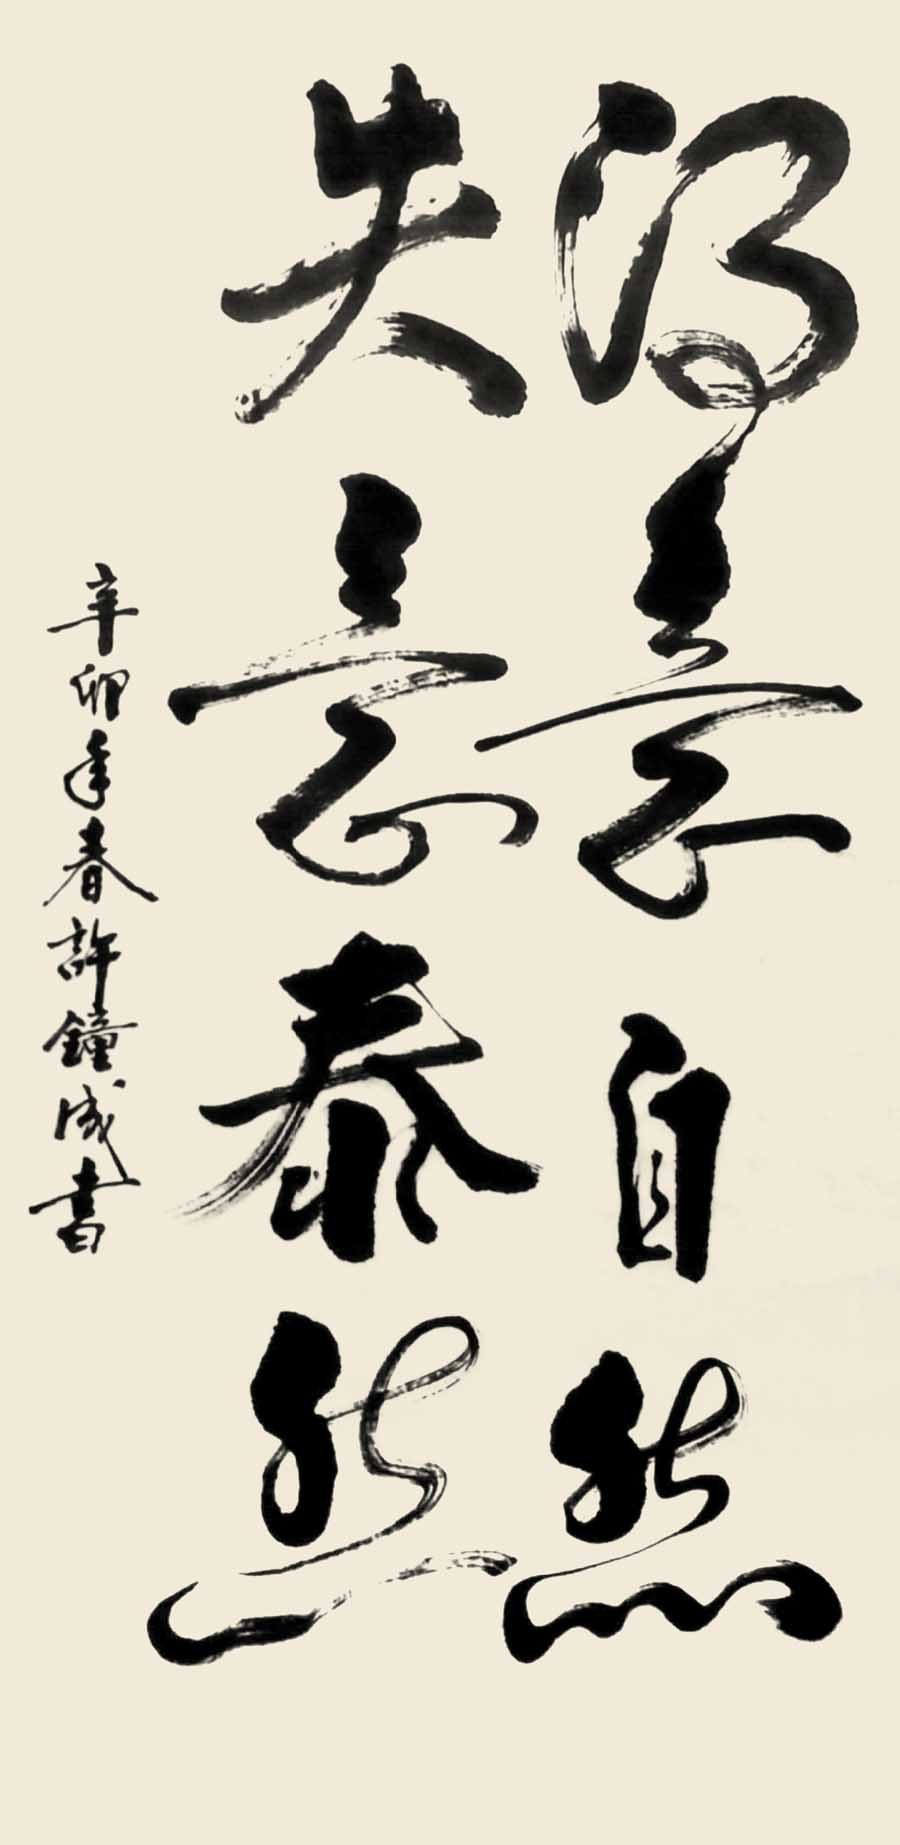 得意自然
失意泰然
辛卯年春許鐘成書